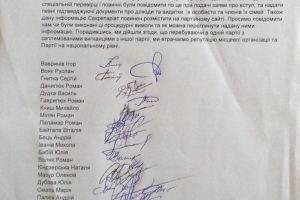 спеціальній перевірці і повинен були повідомити те ще при подачі заяви про вступ, та надати
певні підтверджуючі документи про доходи та видатки їх особисто та членів їх сімей. Також
дану інформацію Секретаріат повинен розмістити на партійному сайті. Просимо повідомити
нам чи були виконані ці процедурні вимоги та чи можна переглянути надану ними
інформацію. Порадившись, ми дійшли згоди, що перебуваючи в одній партії з
заплямованими вигнанцями з іншої партії, ми втрачаємо репутацію місцевої організації та
Партії на національному рівні.
Вавринів Ігор
Вовк Руслан
Гнитка Сергій
Данилюк Роман
Дудка Василь
Гаврилюк Роман
Книш Михайло
Мілян Роман
Паламар Роман
Байтала Віталія
Бець Андрій
Іванів Микола
Бабій Юлія
Яріш Роман
Кіндзерська Наталя
Мазур Олексій
Дубова Юлія
Смаль Марія
Папка Андрій